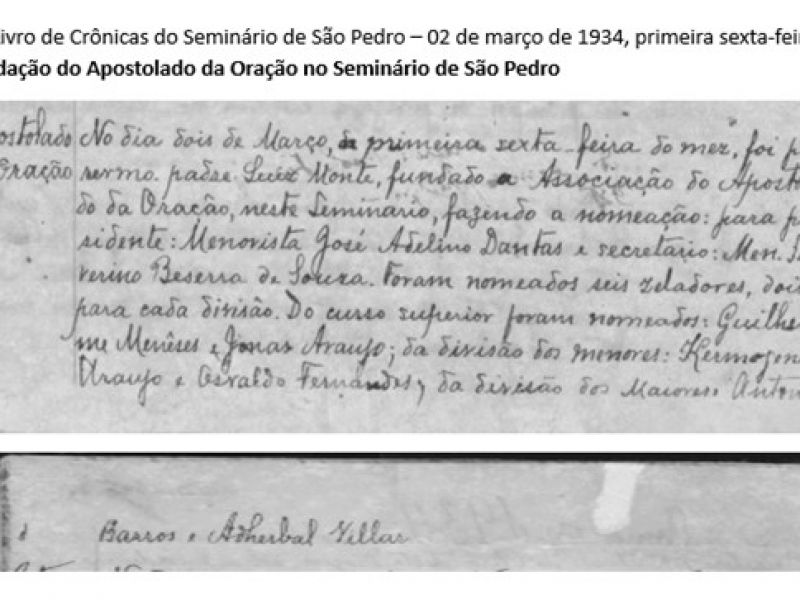 ivro de Crônicas do Seminário de São Pedro – 02 de março de 1934, primeira sexta-fei
dação do Apostolado da Oração no Seminário de São Pedro
ostolado No dia dois de Março, a primeira sexta-feira do mez, foi p
Oração revmo. padre Luiz Monte, fundado a Associação do Aposto
do da Oração, neste Seminario, fazendo a nomeação: para p
sidente: Menorista José Adelino Dantas e secretario: Men. Se
verino Beserra de Souza. Foram nomeados seis zeladores, dois
para cada divisão. Do curso superior foram nomeados: Guilher
me Menêses e Jonas Araujo; da divisão dos menores: Hermogene
Araujo e Osvaldo Fernandes; da divisão dos Maiores: Anton
Barros e Adherbal Villar